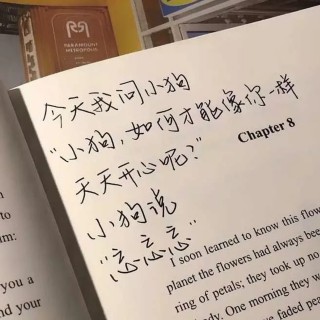 RS
PARAMOUNT
METROPOLIS
今天我问小狗
“小狗,如何才能像你一样
天天开心呢?”
小狗说
“忘忘忘”
Chapter 8
I soon learned to know this flow
planet the flowers had always been
ring of petals; they took up no
body. One morning they w
have faded peac
um:
you a
nd your